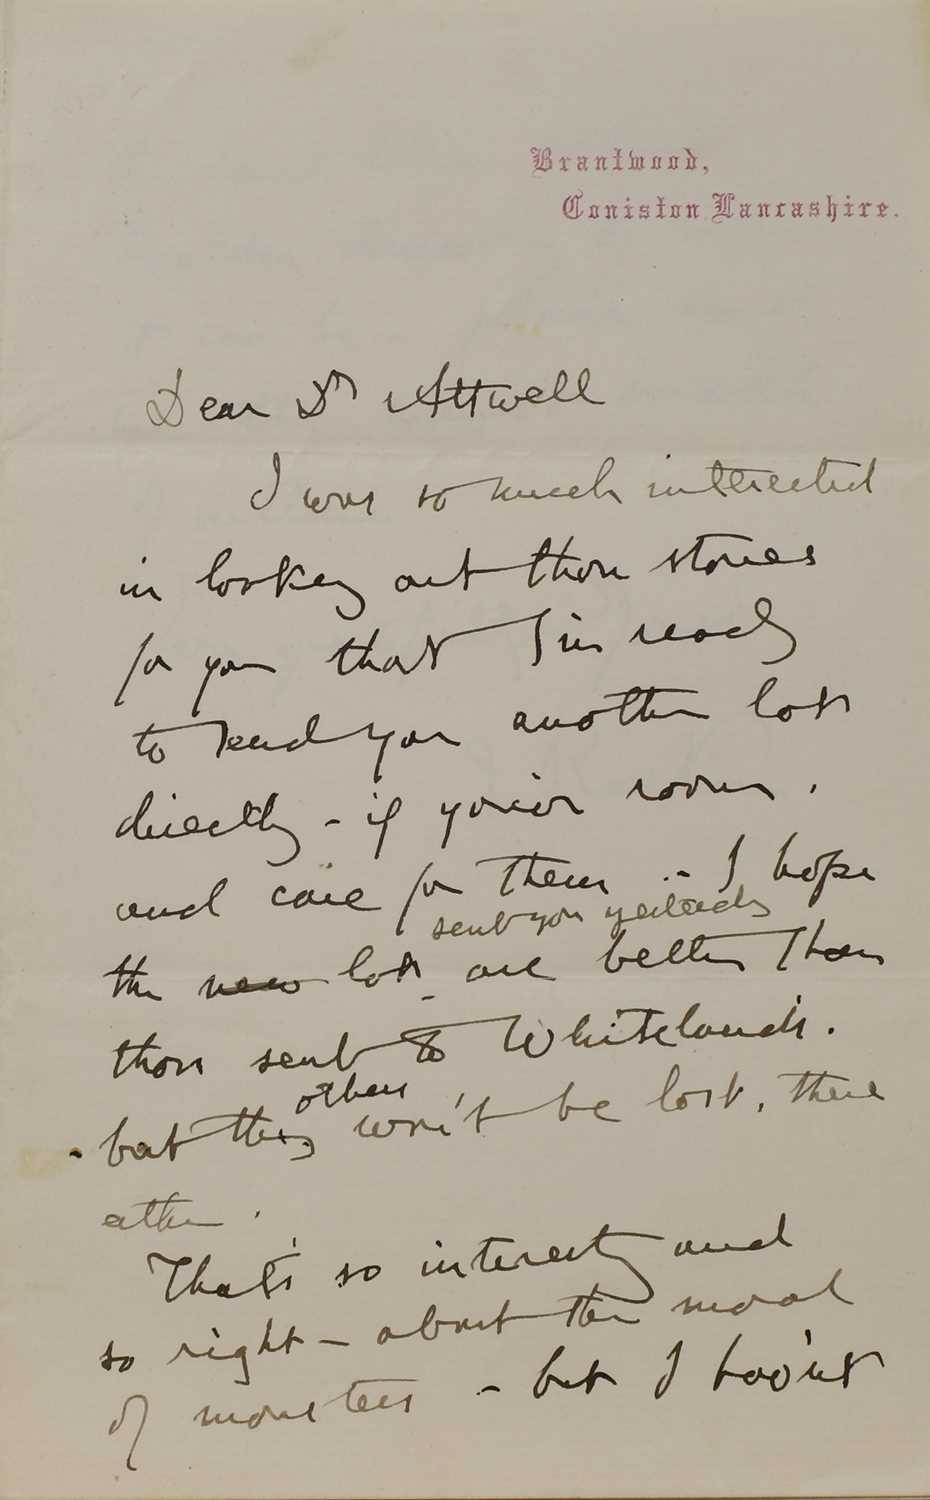 Brantwood,
Coniston Lancashire.
Dear Dr Attwell
I was so much interested
in looking out those stones
for you that I'm ready
to send you another lot
directly - if you've room.
and care for them - I hope
sent you yesterday
the new lot are better than
those sent to Whitelands.
others
- but they won't be lost, there
either.
That's so interesting and
so right - about the moral
of monsters - but I hav'nt